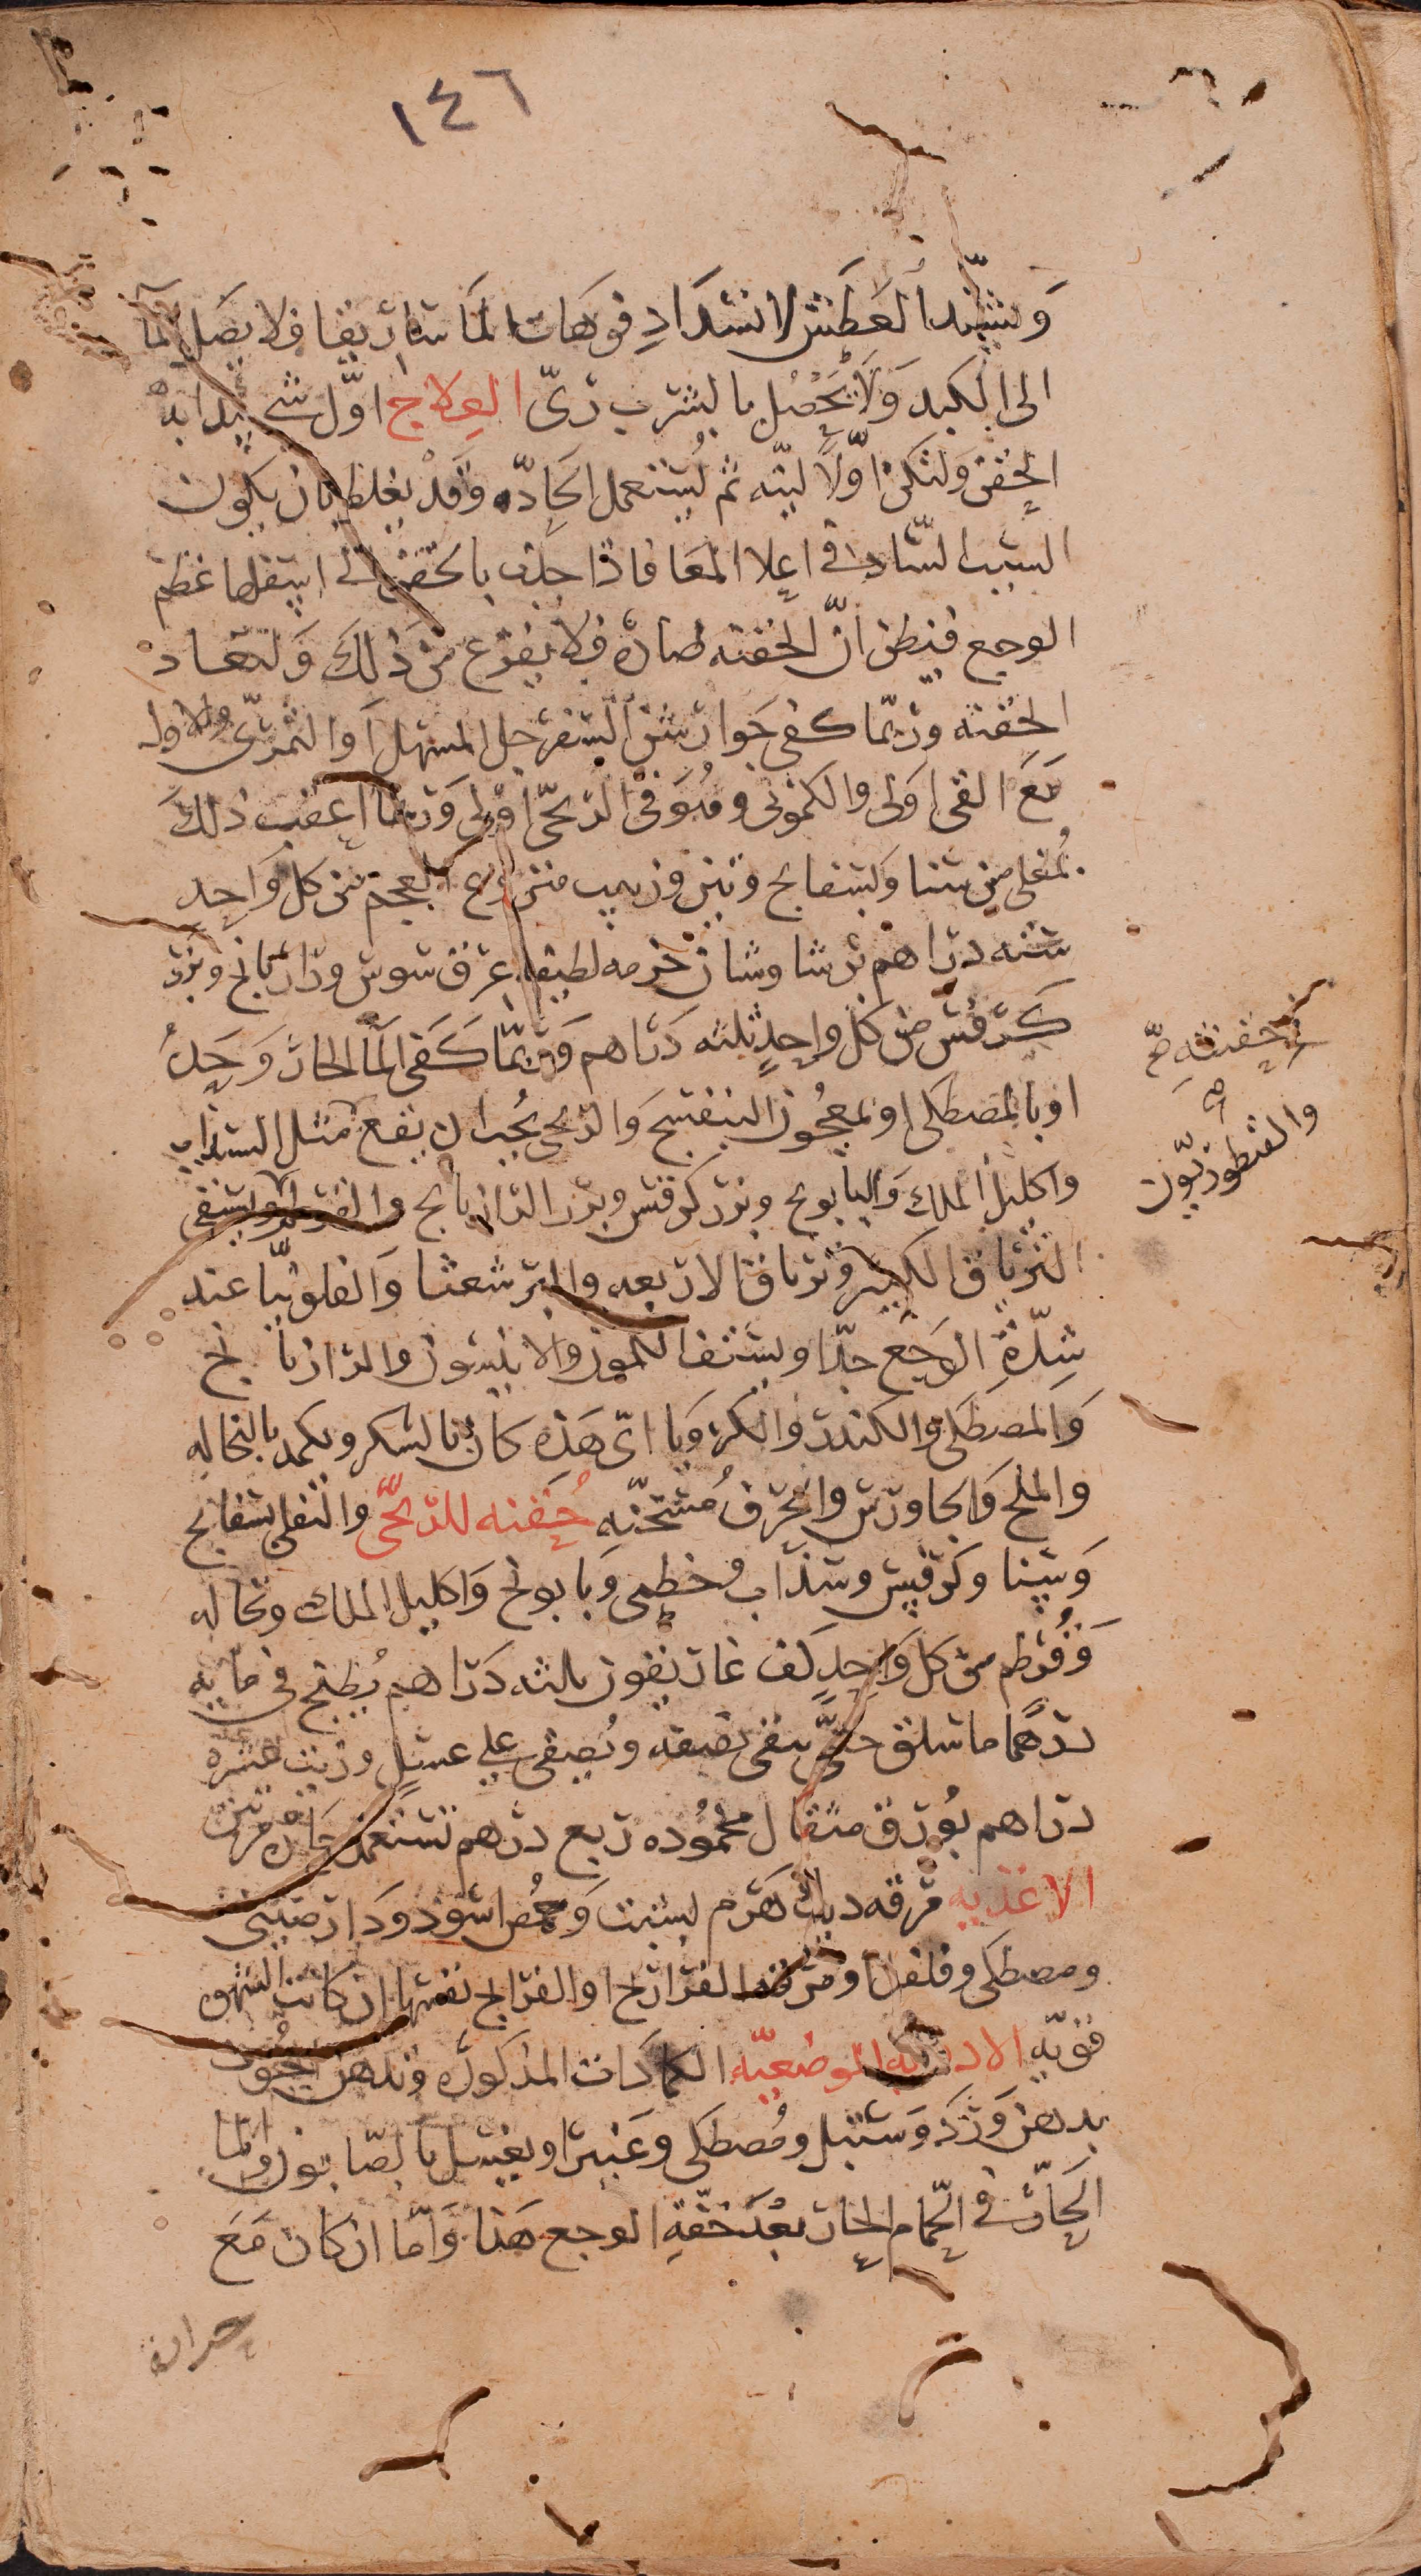 ١٤٦
وَيشتِد العَطَش لانسَدَادِ فوهات الماساريقا فلا يصَل المآ
الى الكبد وَلا يَحصُل بالشرب رىّ العِلاج اوّل شي يبدا به
الحُقن وَلتكن اوّلاً لينه ثم يُستعمل الحَادّه وَقدْ يغلط بان يكون
السَبب السّاد في اعلا المعَا فاذا جذب بالحقن الى اسفل ما عظم
الوجع فيظن انّ الحقنه ضارة فلا يفزع من ذلكَ وَلتعاد
الحُقنه وربّما كفى جَوارشن السّفرجل المسَهل اوَ التمرىّ والاول
مَعَ القى اوَلى والكمونى وهُوَ فى الرّيحىّ اوْلى وَربما اعقب ذلكَ
بمُغلى من سَنا وَبسفايج وتين وزبيب منزوع العجم من كل وَاحِدٍ
ستّه دراهم برشاوشان حزمه لطيفه عِرق سَوس ورازيانج وبزر
كَرفس من كل وَاحدٍ ثلثه دَراهم وَربّما كَفى المآ الحار وَحدهُ
او بالمصطكى او بمعجُون البنفسَج وَالريحى يجُب ان يقع مثل السَذاب
في حقنته صح
والقنطوريّون صح
واكليل الملك وَالبابونج وبزر كرفس وبزر الرازيانج والقرطم ويسَقى
الترياق الكبير وترياق الاربعه والبرشعثا وَالفلونيّا عند
شِدّةِ الوَجَع جدّا ويسَتف الكمون والانيسَون والرازيانج
وَالمصطكى والكندر والكرَاوَيا اىّ هَذه كان بالسكر ويكمد بالنخاله
والملح وَالجاورس والخرق مُسَخّنه حُقنه للرّيحىّ والثفلى بسَفايج
وَسَنا وكرَفس وسَذاب وخطمى وَبابونج وَاكليل الملك ونخاله
وَقُرطم من كل وَاحِدٍ كف غاريقون ثلثه دَراهم يُطبخ فى مايه
درهَم ما سلق حتىّ يبقى نصفه ويُصفى على عسَلٍ وزيت عشره
دراهم بُورق مثقال محمُوده ربع درهم تستعمل حَاره مرّتين
الاغذيه مرقه ديك هَرم بشبت وَحمُص اسَود وَدَار صينى
ومصطكى وفلفل او مرقه الفراريج او الفراريج نفسَها ان كانت الشهوة
قويّه الادويه الموضعيّه الكمادَات المذكورة وتدهن الجُوف
بدهن وَرْد وَسَنبل ومُصطكى وعَنبر او يغسَل بالصّابون والما
الحَارّ في الحَمام الحار بعْد خفّةِ الوجع هَذا وَامّا ان كان مَعَ
حرارة